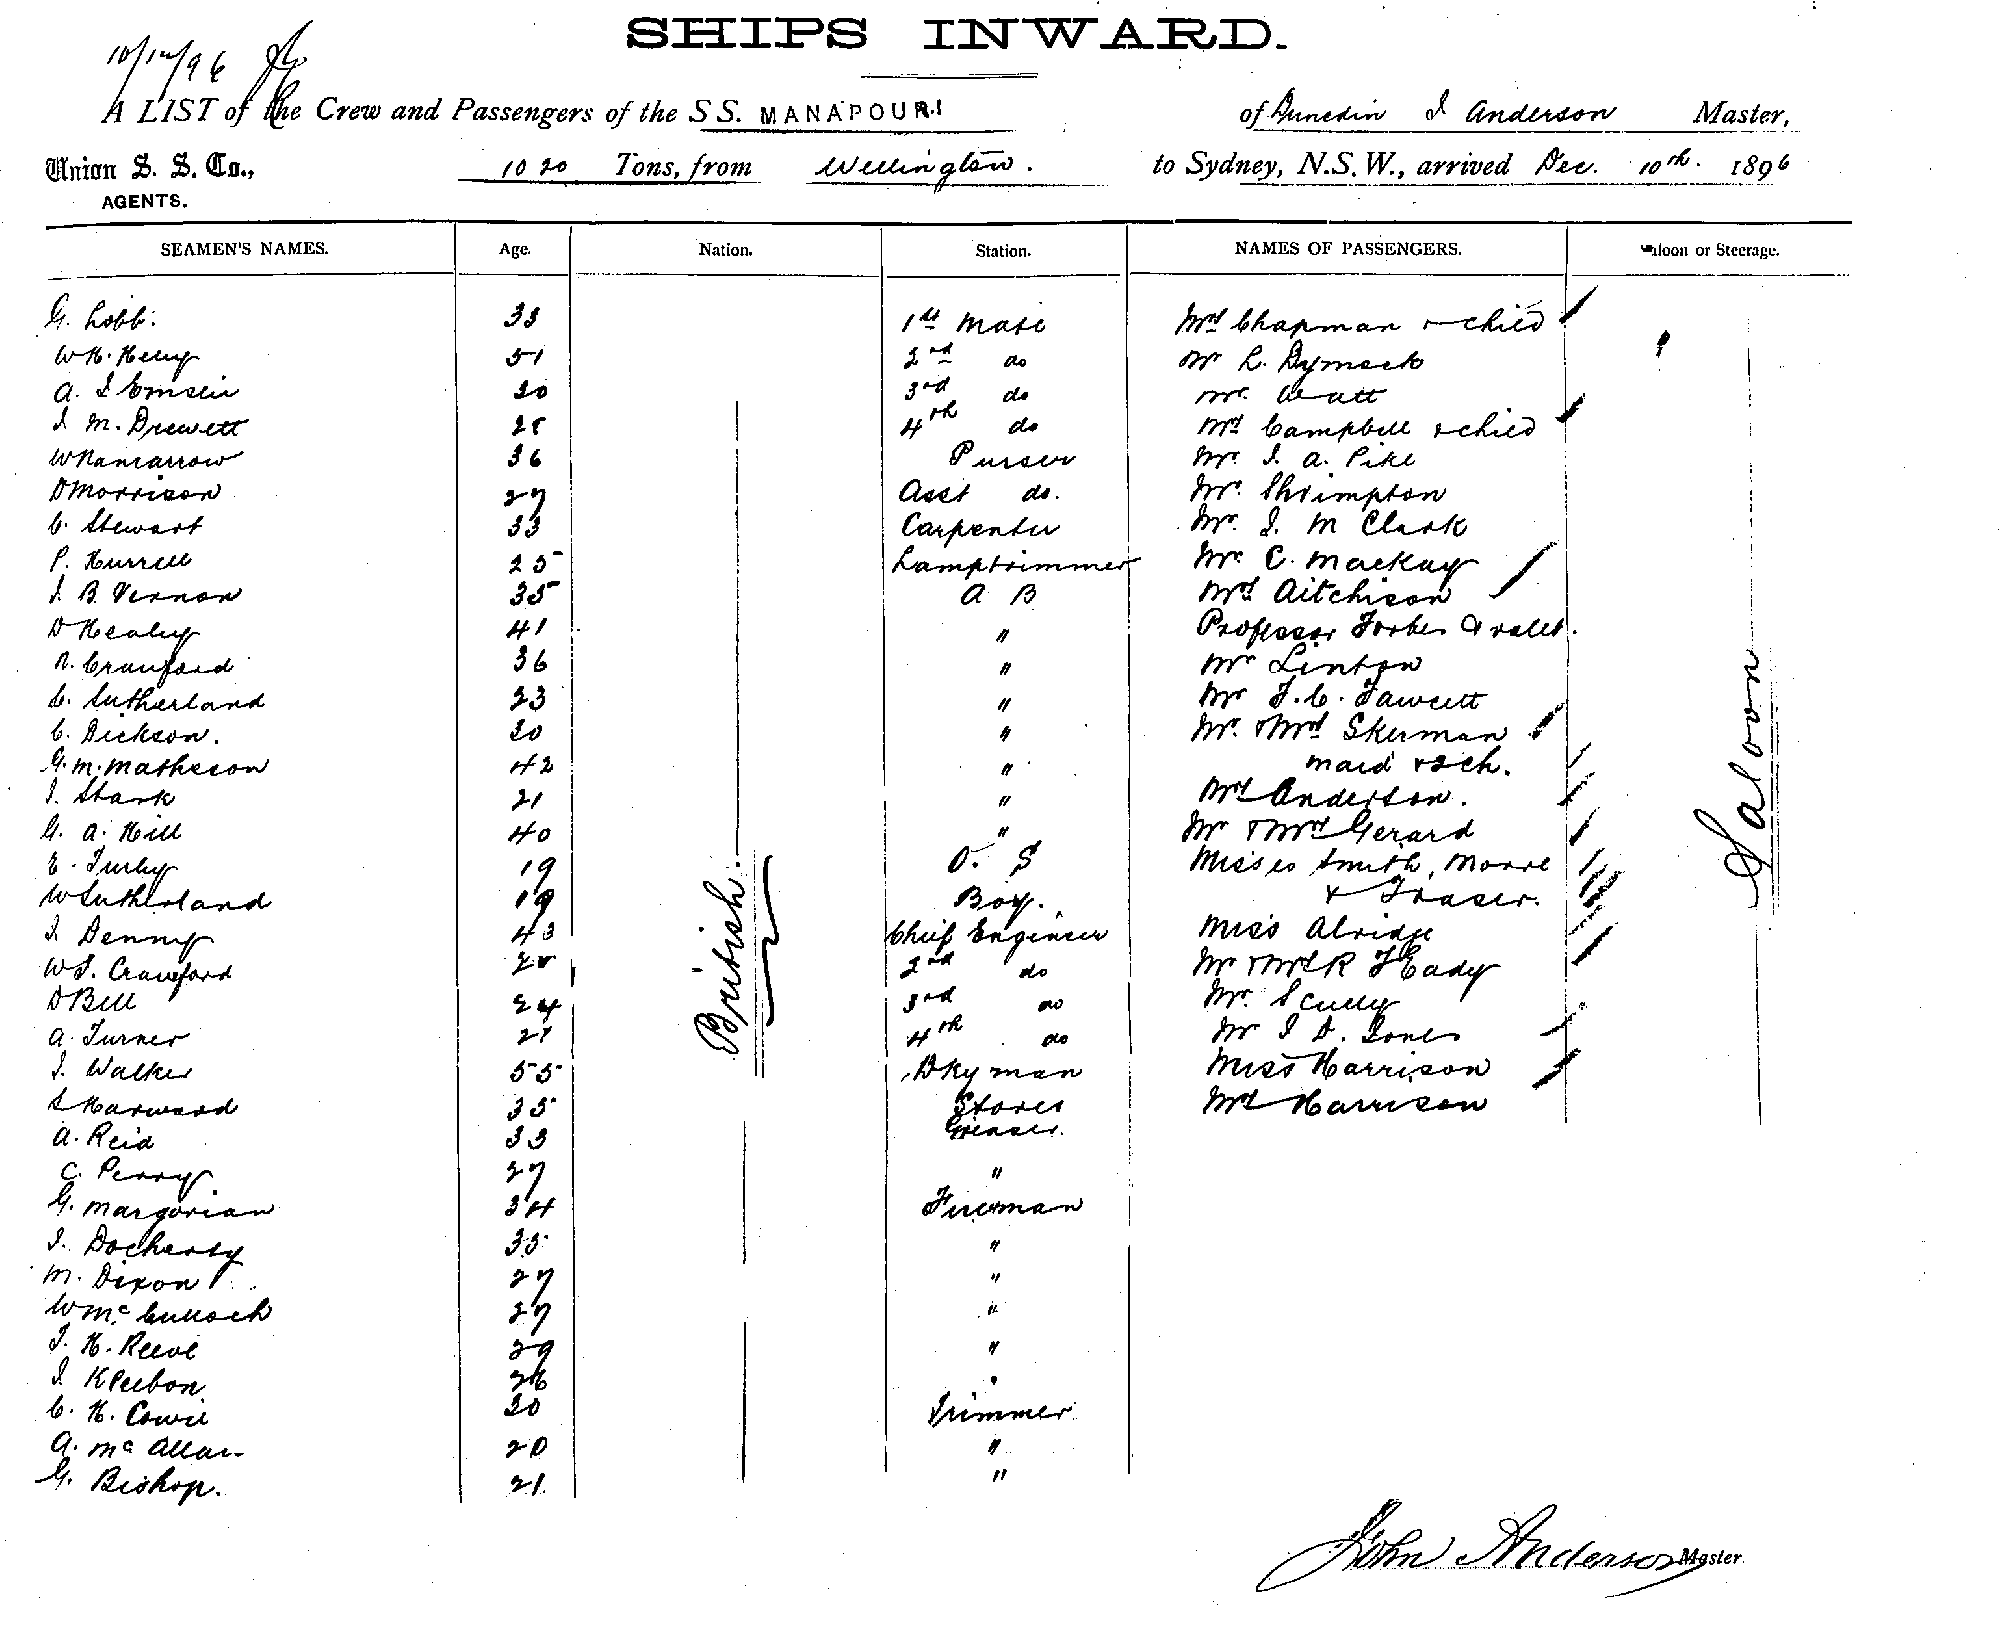 SHIPS INWARD.
10/12/96
A LIST of the Crew and Passengers of the SS. MANAPOURI of Dunedin J Anderson Master,
Union S. S. Co., 1020 Tons, from Wellington. to Sydney, N.S.W., arrived Dec. 10th. 1896
AGENTS.
SEAMEN'S NAMES. Age. Nation. Station. NAMES OF PASSENGERS. Saloon or Steerage.
G. Lobb. 33 1st Mate Mrs Chapman & child
W H. Kelly 51 2nd do Mr L. Dymock
A. J 20 3rd do Mr. Watt
J M. Drewett 28 4th do Mrs Campbell & child
36 Purser Mr. J. A. Pike
D Morrison 27 Asst do. Mr. Shrimpton
C. Stewart 33 Carpenter Mr. J. M Clark
P. Hurrell 25 Lamptrimmer Mr. C. Mackay
J. B. Vernon 35 A B Mrs Aitchison
D Healy 41 " Professor Forbes & valet.
R. Crawford 36 " Mr Linton
C. Sutherland 23 " Mr F. C. Fawcett
C. Dickson. 20 " Mr. & Mrs Skerman
G. M. Matheson 42 " maid & 2 ch.
J. Stark 21 " Mrs Anderson.
G. A. Hill 40 " Mr & Mrs Gerard
E. Turby 19 O. S Misses Smith, Moore
W Sutherland 19 Boy. & Fraser.
J Denny 43 Chief Engineer Miss Alridge
W S. Crawford 28 2nd do Mr & Mrs R T Eady
D Bell 24 3rd do Mr. Scully
A. Turner 27 4th do Mr J D. Jones
J. Walker 55 Dkyman Miss Harrison
S Harward 35 Stores Mrs Harrison
A. Reid 33 Greaser.
C. Perry 27 "
G. Margorian 34 Fireman
J. Docherty 35 "
M. Dixon 27 "
W McCulloch 27 "
T. H. Reeve 29 "
J 26 "
C. H. Cowie 20 Trimmer
A. McAllan 20 "
G. Bishop. 21 "
British.
Saloon
John Anderson Master